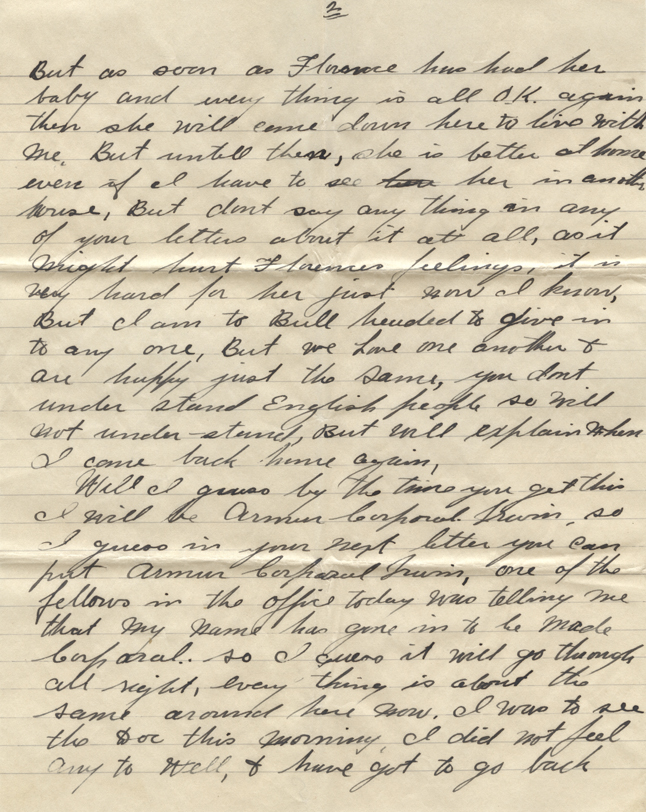 2
But as soon as Florence has had her
baby and every thing is all O.K. again
then she will come down here to live with
me, But untell then, she is better at home
even if I have to see her in another
house, But dont say any thing in any
of your letters about it at all, as it
might hurt Florences feelings, it is
very hard for her just now I know,
But I am to Bull headed to give in
to any one, But we Love one another &
are happy just the same, you dont
under stand English people so will
not under-stand, But will explain when
I come back home again,
Will I guess by the time you get this
I will be Armur Corporal Irwin, so
I guess in your next letter you can
put Armur Corporal Irwin, one of the
fellows in the office today was telling me
that my name has gone in to be made
Corporal.. so I guess it will go through
all right, every thing is about the
same around here now. I was to see
the Doc this morning, I did not feel
any to Well, & have got to go back